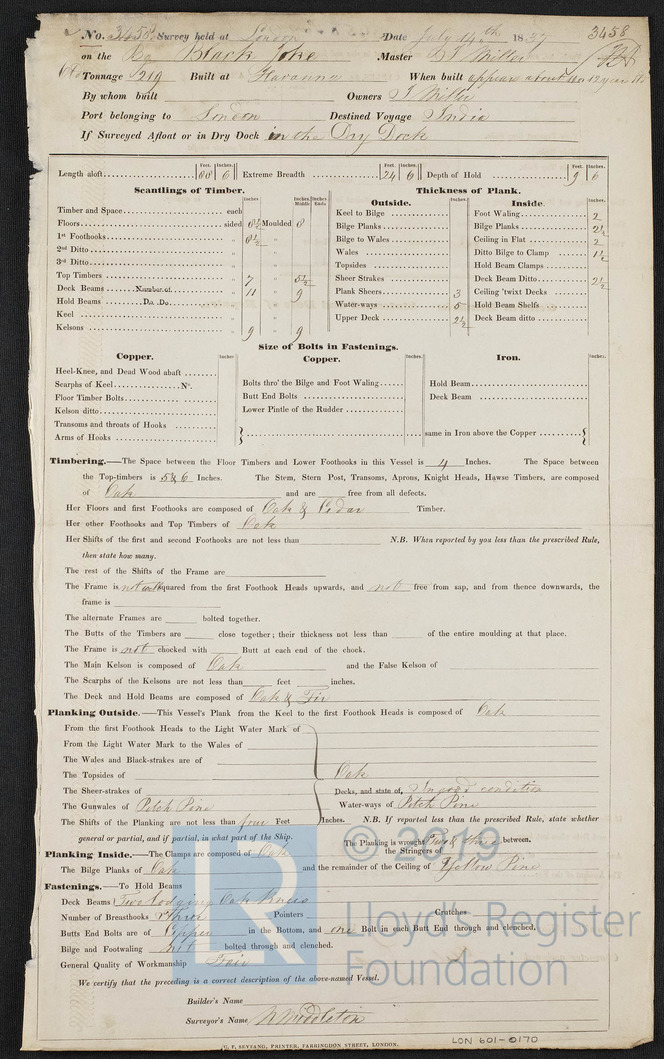 No. 3458 Survey held at London Date July 14th 1837 3458
on the Bg Black Joke Master J Miller
Tonnage 219 Built at Havanna When built appears about 10 or 12 years old
By whom built Owners J Miller
Port belonging to London Destined Voyage India
If Surveyed Afloat or in Dry Dock in the Dry Dock
Feet. Inches. Feet. Inches. Feet. Inches.
Length aloft 6 Extreme Breadth 24 6 Depth of Hold 9 6
Scantlings of Timber. Thickness of Plank.
Inches Inches Middle Inches Ends Outside. Inches. Inside. Inches.
Timber and Space each Keel to Bilge Foot Waling 2
Floors sided 8½ Moulded 8 Bilge Planks Bilge Planks 2½
1st Foothooks „ 6½ „ Bilge to Wales Ceiling in Flat 2
2nd Ditto „ „ Wales Ditto Bilge to Clamp 1½
3rd Ditto „ „ Topsides Hold Beam Clamps
Top Timbers „ 7 „ 5½ Sheer Strakes Deck Beam Ditto 2½
Deck Beams Number of „ 11 „ 9 Plank Sheers 3 Ceiling 'twixt Decks
Hold Beams Do. Do. „ „ Water-ways 5 Hold Beam Shelfs
Keel „ „ Upper Deck 2½ Deck Beam ditto
Kelsons „ 9 „ 9
Size of Bolts in Fastenings.
Copper. Inches Copper. Inches. Iron. Inches.
Heel-Knee, and Dead Wood abaft
Scarphs of Keel No. Bolts thro' the Bilge and Foot Waling Hold Beam
Floor Timber Bolts Butt End Bolts Deck Beam
Kelson ditto Lower Pintle of the Rudder
Transoms and throats of Hooks
Arms of Hooks same in Iron above the Copper
Timbering.—The Space between the Floor Timbers and Lower Foothooks in this Vessel is 4 Inches. The Space between
the Top-timbers is 5 & 6 Inches. The Stem, Stern Post, Transoms, Aprons, Knight Heads, Hawse Timbers, are composed
of Oak and are free from all defects.
Her Floors and first Foothooks are composed of Oak & Cedar Timber.
Her other Foothooks and Top Timbers of Oak
Her Shifts of the first and second Foothooks are not less than N.B. When reported by you less than the prescribed Rule,
then state how many.
The rest of the Shifts of the Frame are
The Frame is not well squared from the first Foothook Heads upwards, and not free from sap, and from thence downwards, the
frame is
The alternate Frames are bolted together.
The Butts of the Timbers are close together; their thickness not less than of the entire moulding at that place.
The Frame is not chocked with Butt at each end of the chock.
The Main Kelson is composed of Oak and the False Kelson of
The Scarphs of the Kelsons are not less than feet inches.
The Deck and Hold Beams are composed of Oak & Fir
Planking Outside.—This Vessel's Plank from the Keel to the first Foothook Heads is composed of Oak
From the first Foothook Heads to the Light Water Mark of
From the Light Water Mark to the Wales of
The Wales and Black-strakes are of
The Topsides of Oak
The Sheer-strakes of Decks, and state of, In good condition
The Gunwales of Pitch Pine Water-ways of Pitch Pine
The Shifts of the Planking are not less than four Feet Inches. N.B. If reported less than the prescribed Rule, state whether
general or partial, and if partial, in what part of the Ship. The Planking is wrought Two & three between.
Planking Inside.—The Clamps are composed of Oak the Stringers of
The Bilge Planks of Oak and the remainder of the Ceiling of Yellow Pine
Fastenings.—To Hold Beams
Deck Beams Two lodging Oak Knees
Number of Breasthooks three Pointers Crutches
Butts End Bolts are of Copper in the Bottom, and one Bolt in each Butt End through and clenched.
Bilge and Footwaling not bolted through and clenched.
General Quality of Workmanship Fair
We certify that the preceding is a correct description of the above-named Vessel.
Builder's Name
Surveyor's Name N Middleton
G. F. SEYFANG, PRINTER, FARRINGDON STREET, LONDON.
LON 601-0170
© 2019
LR Lloyd's Register
Foundation